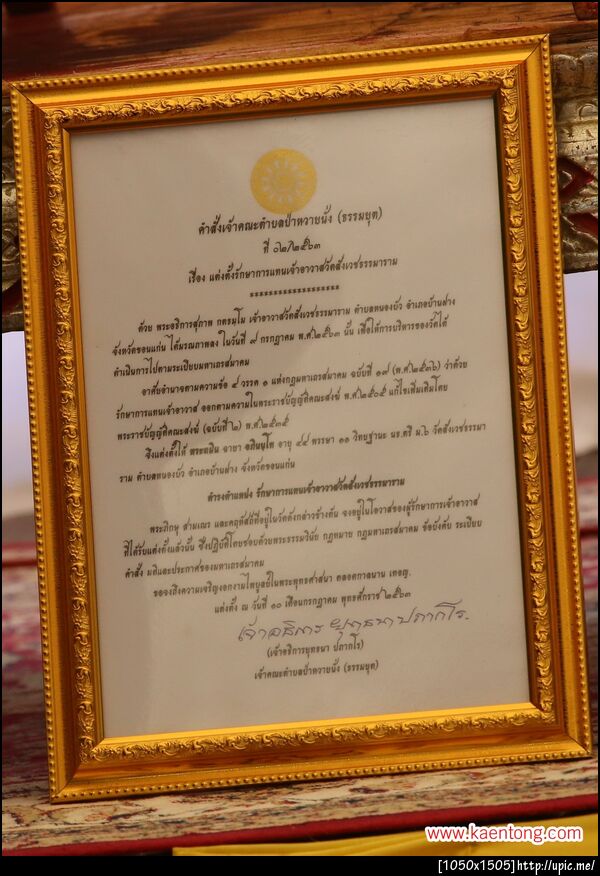 คำสั่งเจ้าคณะตำบลป่าหวายนั่ง (ธรรมยุต)
ที่ ๐๒/๒๕๖๓
เรื่อง แต่งตั้งรักษาการแทนเจ้าอาวาสวัดสังเวชธรรมาราม
*******************
ด้วย พระอธิการสุภาพ กตธมฺโม เจ้าอาวาสวัดสังเวชธรรมาราม ตำบลหนองบัว อำเภอบ้านฝาง
จังหวัดขอนแก่น ได้มรณภาพลง ในวันที่ ๙ กรกฎาคม พ.ศ.๒๕๖๓ นั้น เพื่อให้การบริหารของวัดได้
ดำเนินการไปตามระเบียบมหาเถรสมาคม
อาศัยอำนาจตามความข้อ ๔ วรรค ๑ แห่งกฎมหาเถรสมาคม ฉบับที่ ๑๙ (พ.ศ.๒๕๓๖) ว่าด้วย
รักษาการแทนเจ้าอาวาส ออกตามความในพระราชบัญญัติคณะสงฆ์ พ.ศ.๒๕๐๕ แก้ไขเพิ่มเติมโดย
พระราชบัญญัติคณะสงฆ์ (ฉบับที่๒) พ.ศ.๒๕๓๕
จึงแต่งตั้งให้ ฉายา อภินนฺโท อายุ ๔๔ พรรษา ๑๑ วิทยฐานะ นธ.ตรี ม.๖ วัดสังเวชธรรมา
ราม ตำบลหนองบัว อำเภอบ้านฝาง จังหวัดขอนแก่น
ดำรงตำแหน่ง รักษาการแทนเจ้าอาวาสวัดสังเวชธรรมาราม
พระภิกษุ สามเณร และคฤหัสถ์ที่อยู่ในวัดดังกล่าวข้างต้น จงอยู่ในโอวาสของผู้รักษาการเจ้าอาวาส
ที่ได้รับแต่งตั้งแล้วนั้น ซึ่งปฏิบัติโดยชอบด้วยพระธรรมวินัย กฎหมาย กฎมหาเถรสมาคม ข้อบังคับ ระเบียบ
คำสั่ง มติและประกาศของมหาเถรสมาคม
ขอจงถึงความเจริญงอกงามไพบูลย์ในพระพุทธศาสนา ตลอดกาลนาน เทอญ.
แต่งตั้ง ณ วันที่ ๑๐ เดือนกรกฎาคม พุทธศักราช ๒๕๖๓
เจ้าอธิการ ยุทธนา ปภากโร.
(เจ้าอธิการยุทธนา ปภากโร)
เจ้าคณะตำบลป่าหวายนั่ง (ธรรมยุต)
www.kaentong.com
[1050x1505]http://upic.me/